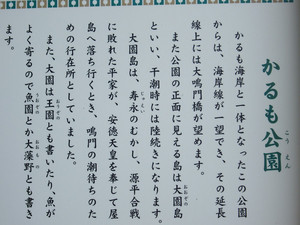 かるも公園
こうえん
かるも海岸と一体となったこの公園
からは、海岸線が一望でき、その延長
線上には大鳴門橋が望めます。
また公園の正面に見える島は大園島
といい、干潮時には陸続きになります。
大園島は、寿永のむかし、源平合戦
じゅえい
に敗れた平家が、安徳天皇を奉じて屋
島へ落ち行くとき、鳴門の潮待ちのた
めの行在所としていました。
また、大園は王園とも書いたり、魚が
おうぞの
よく寄るので魚園とか大藻野とも書き
ます。